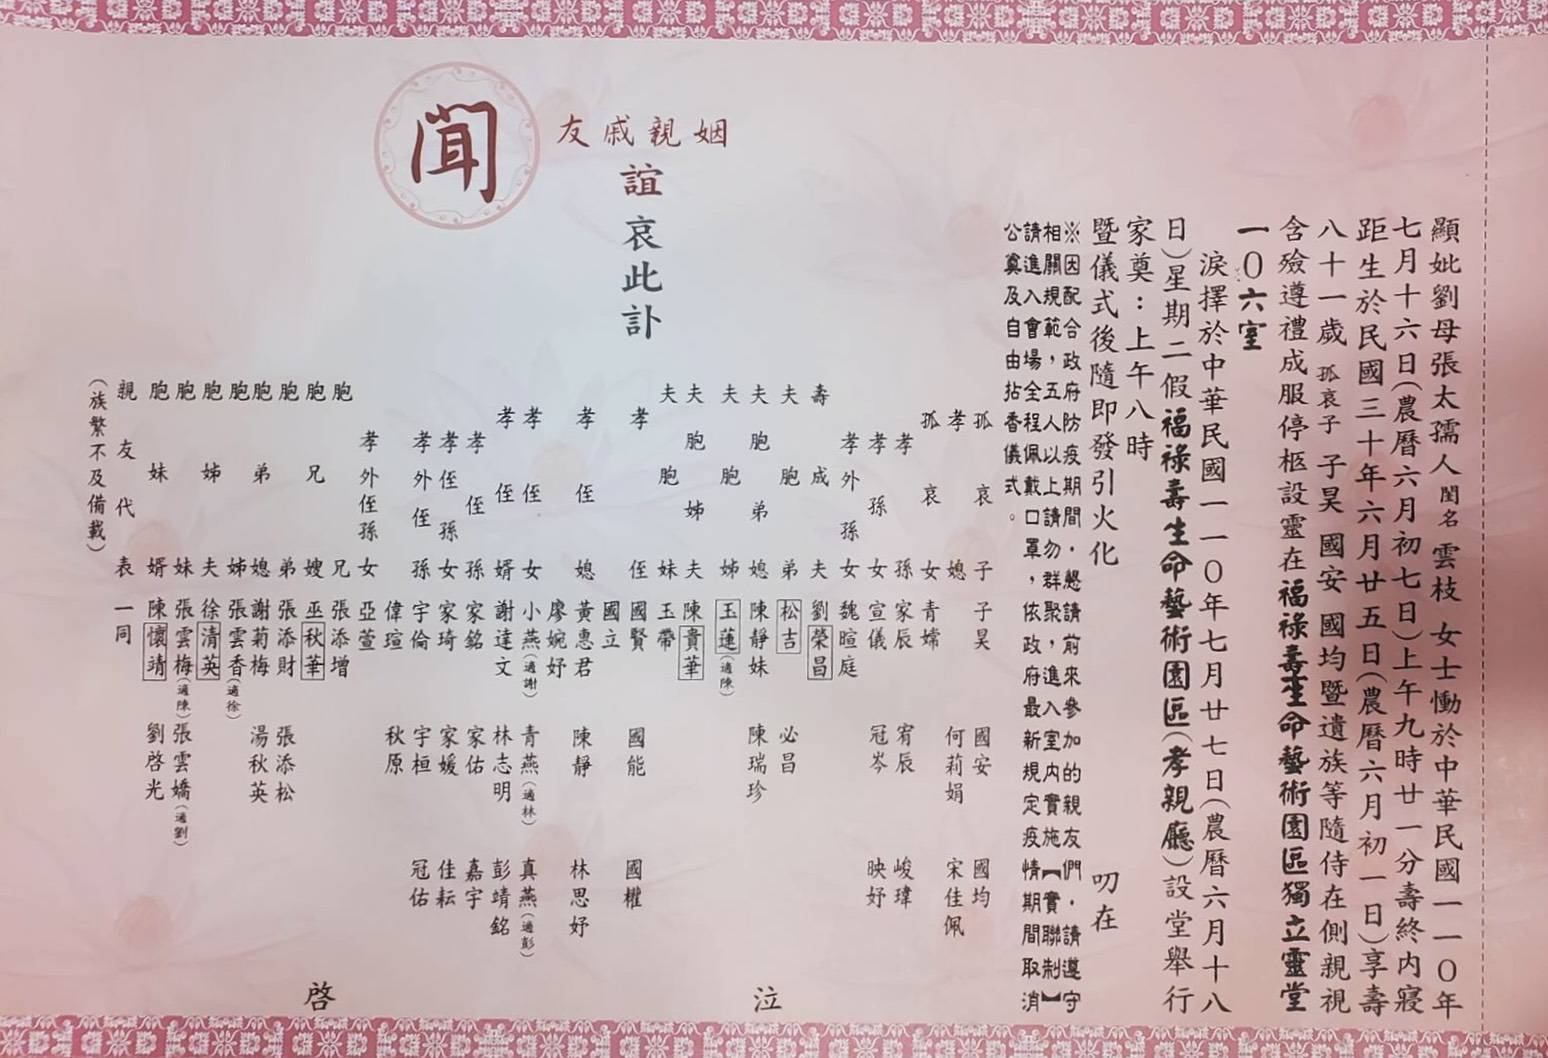 顯妣劉母張太孺人 閨名 雲枝 女士慟於中華民國一一0年
七月十六日(農曆六月初七日)上午九時廿一分壽終內寢
距生於民國三十年六月廿五日(農曆六月初一日)享壽
八十一歲 孤哀子 子昊 國安 國均暨遺族等隨侍在側親視
含殮遵禮成服停柩設靈在福祿壽生命藝術園區獨立靈堂
一0六室
淚擇於中華民國一一0年七月廿七日(農曆六月十八
日)星期二假福祿壽生命藝術園區(孝親廳)設堂舉行
家奠:上午八時
暨儀式後隨即發引火化 叨在
※因配合政府防疫期間,懇請前來參加的親友們,請遵守
相關規範,五人以上請勿群聚,進入室內實施【實聯制】
請進入會場全程佩戴口罩,依政府最新規定疫情期間取消
公奠及自由拈香儀式。
姻親戚友
誼哀此訃
聞
孤哀子 子昊 國安 國均
孝媳 何莉娟 宋佳佩
孤哀女 青嬬
孝孫 家辰 宥辰 峻瑋
孝孫女 宣儀 冠岑 映妤
孝外孫女 魏暄庭
壽成夫 劉榮昌
夫胞弟 松吉 必昌
夫胞弟媳 陳靜妹 陳瑞珍
夫胞姊 玉蓮(適陳)
夫胞姊夫 陳貴華
夫胞妹 玉帶
孝侄 國賢 國能 國權
國立
孝侄媳 黃惠君 陳靜 林思妤
廖婉妤
孝侄女 小燕(適謝) 青燕(適林) 真燕(適彭)
孝侄婿 謝達文 林志明 彭靖銘
孝侄孫 家銘 家佑 嘉宇
孝侄孫女 家琦 家媛 佳耘
孝外侄孫 宇倫 宇桓 冠佑
偉瑄 秋原
孝外侄孫女 亞萱
胞兄 張添增
胞兄嫂 巫秋華
胞弟 張添財 張添松
胞弟媳 謝菊梅 湯秋英
胞姊 張雲香(適徐)
胞姊夫 徐清英
胞妹 張雲梅(適陳) 張雲嬌(適劉)
胞妹婿 陳懷靖 劉啓光
親友代表 一同
(族繁不及備載)
泣啓